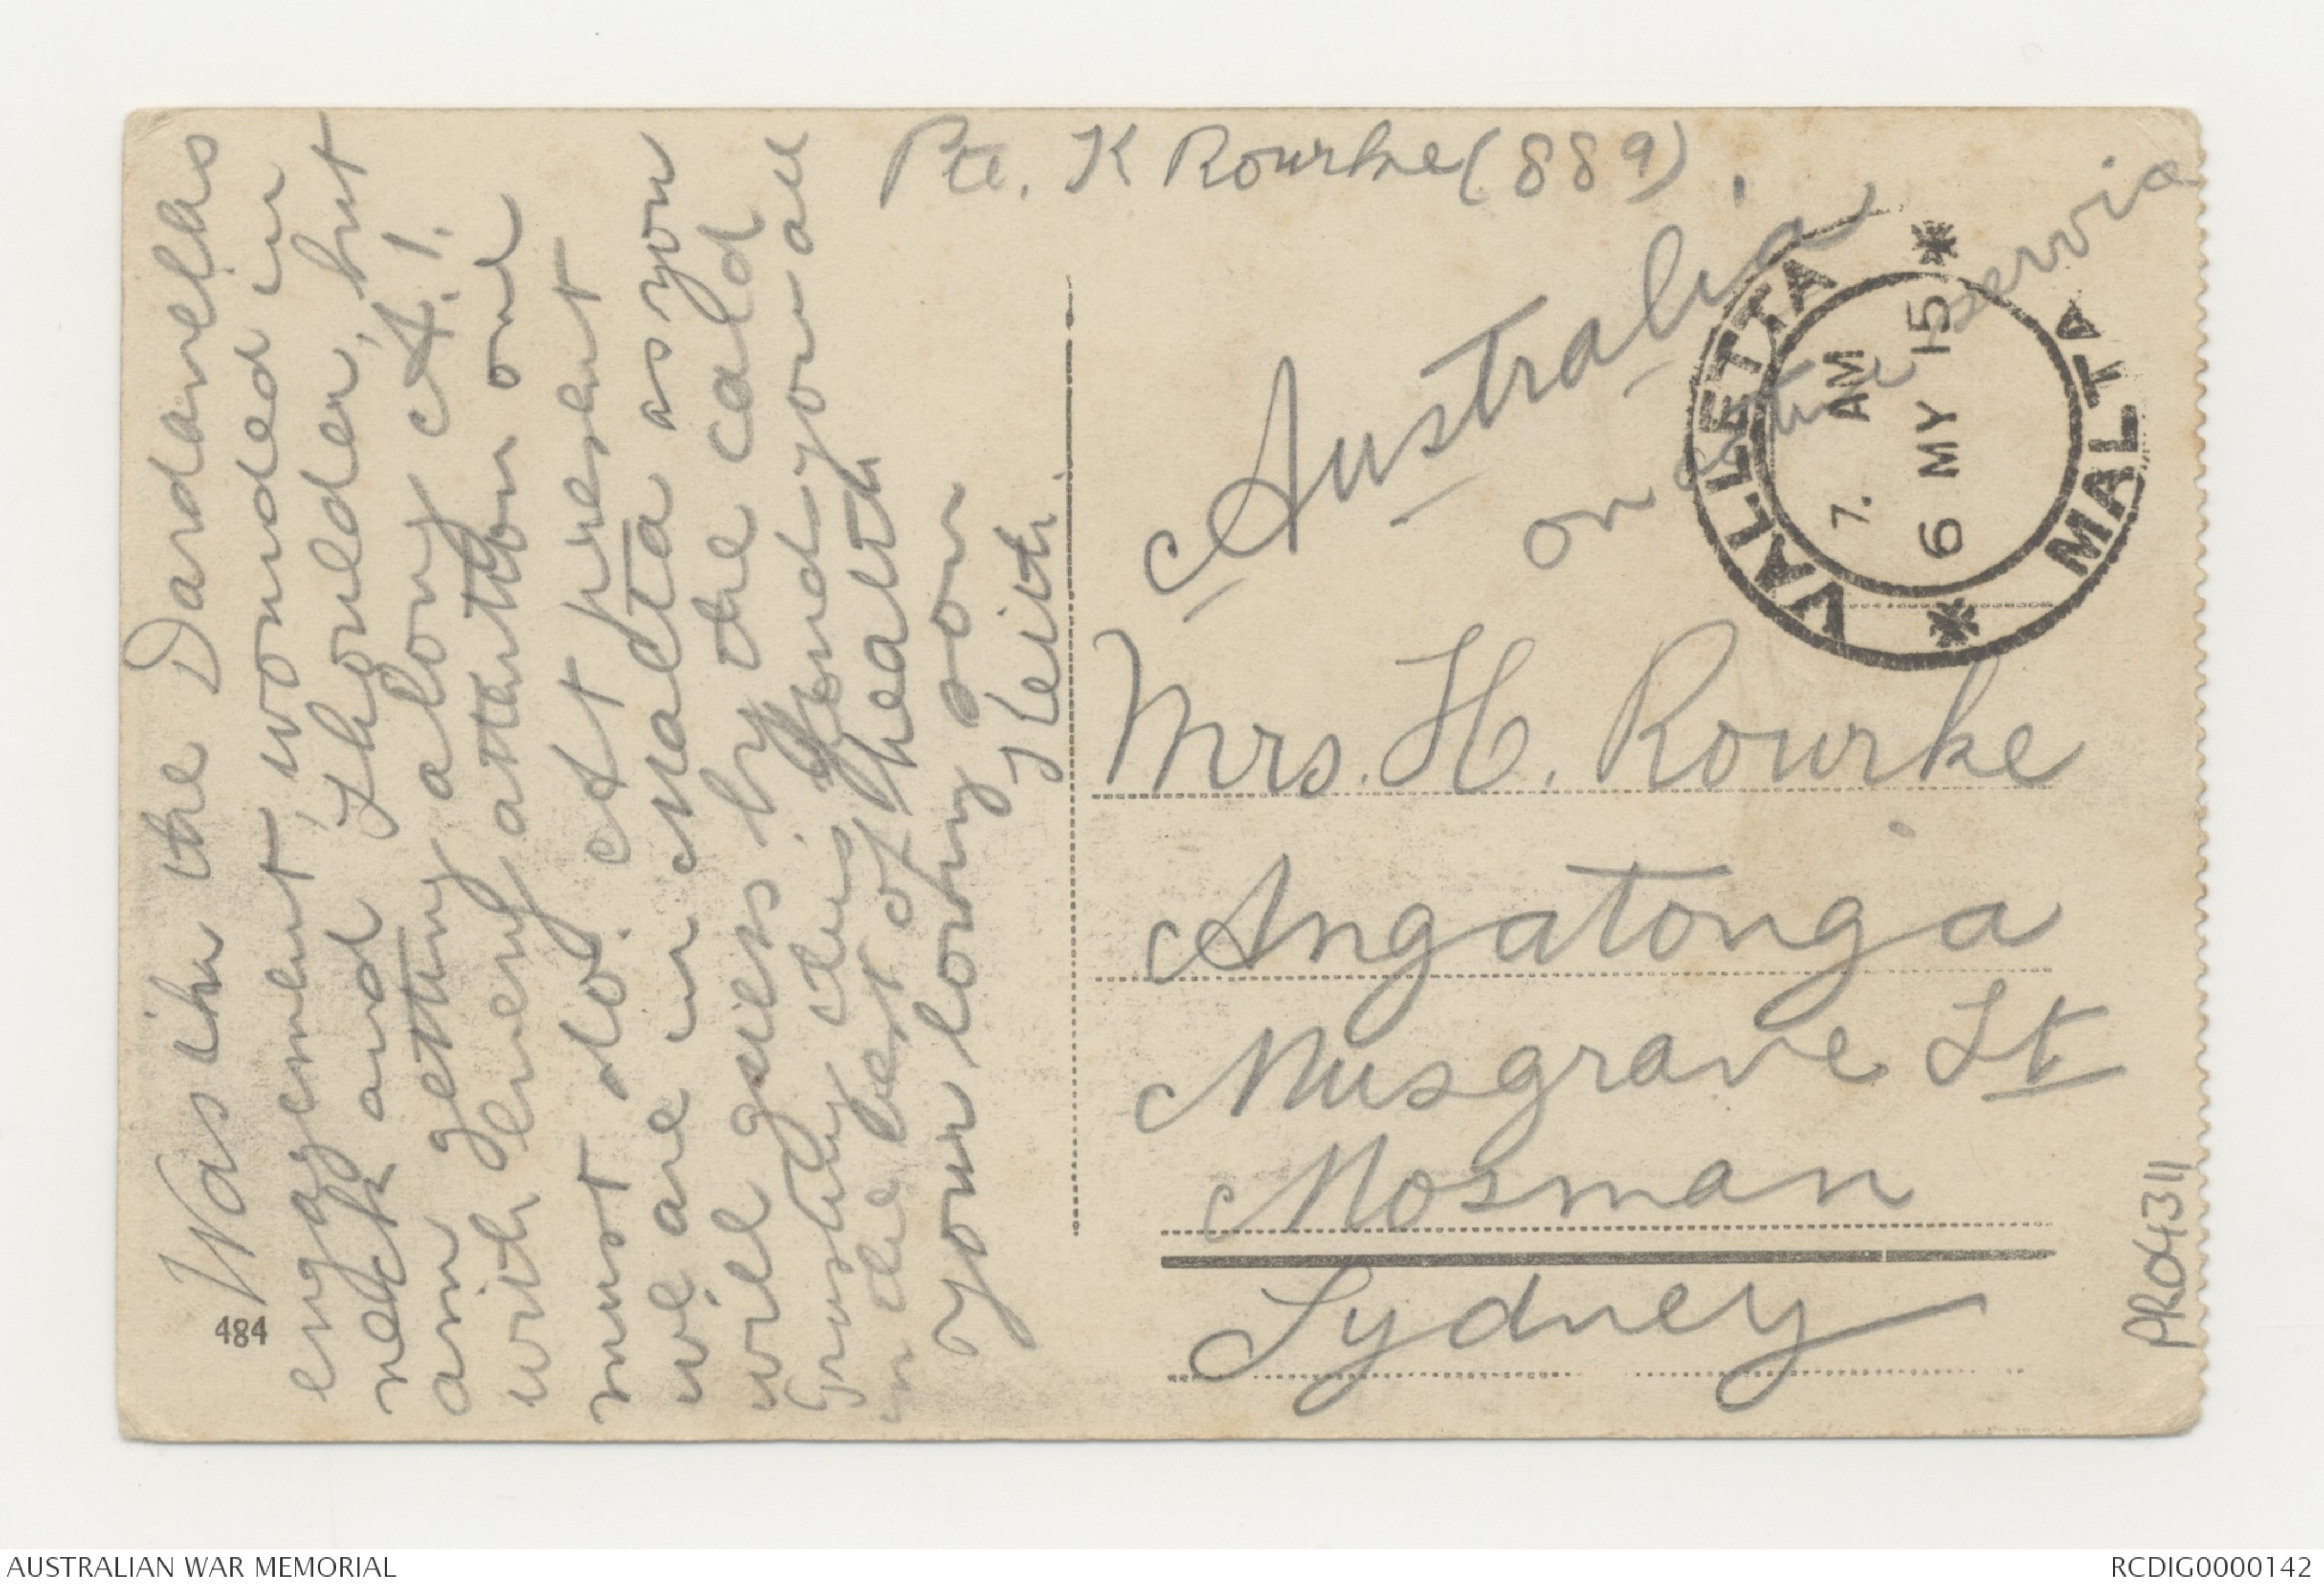 Was in the Dardanelles
engagement, wounded in
neck and shoulder, but
am getting along A.1.
with every attention one
must do. At present
we are in Malta as you
will guess by the card
Trusting this finds you all
in the best of health
your loving son
Keith.
484
Pte. K Rourke (889).
Australia
on active servic
VALLETTA
MALTA
7. AM
6 MY 15
Mrs. H. Rourke
Angatonga
Musgrave St
Mosman
Sydney
PR04311
AUSTRALIAN WAR MEMORIAL
RCDIG0000142